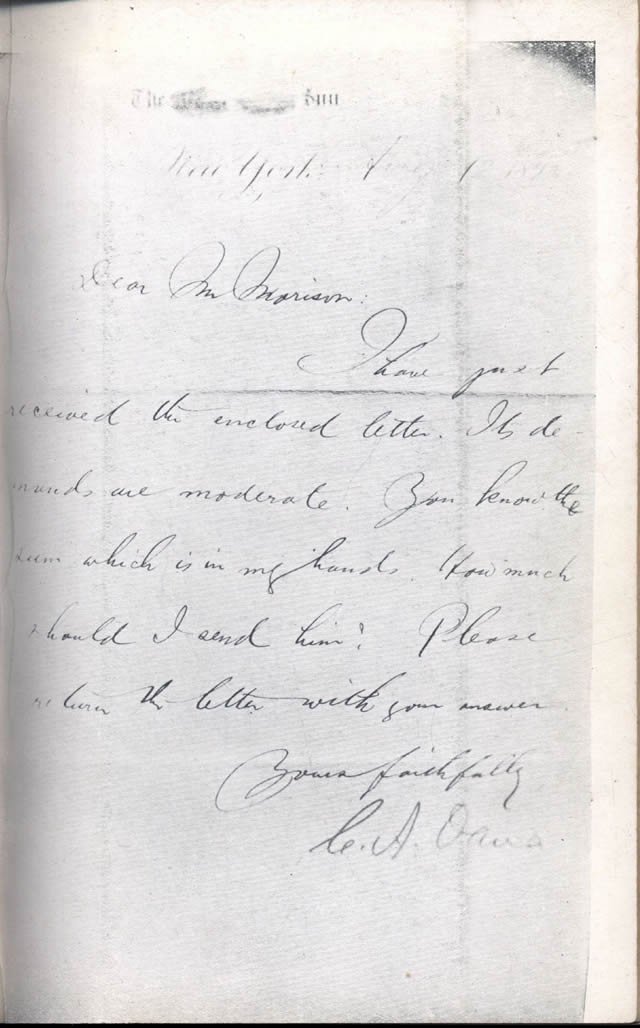 The Sun
New York,
Dear Mr Morison:
I have just
received the enclosed letter. Its de-
mands are moderate. You know the
sum which is in my hands. How much
should I send him? Please
return the letter with your answer.
Yours faithfully
C. A. Dana